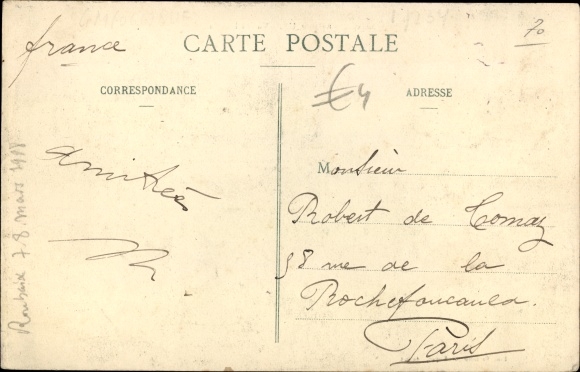 france
CARTE POSTALE
70
CORRESPONDANCE
€4
ADRESSE
amitiés
Monsieur
Robert de Comaz
58 rue de la
Rochefoucauld.
Paris
Roubaix 7.8 mars 1911